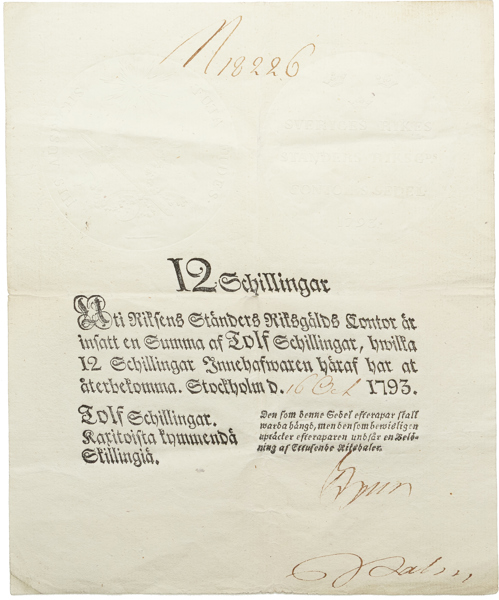 N 18226
12 Schillingar
Uti Riksens Ständers Riksgälds Contor är
insatt en Summa af Tolf Schillingar, hwilka
12 Schillingar Innehafwaren häraf har at
återbekomma. Stockholm d. 16 Oct 1793.
Tolf Schillingar.
Kaxitoista kymmendä
Skillingiä.
Den som denne Sedel efterapar skall
warda hängd, men den som bewisligen
uptäcker efteraparen undfår en Belö-
ning af Ettusende Riksdaler.